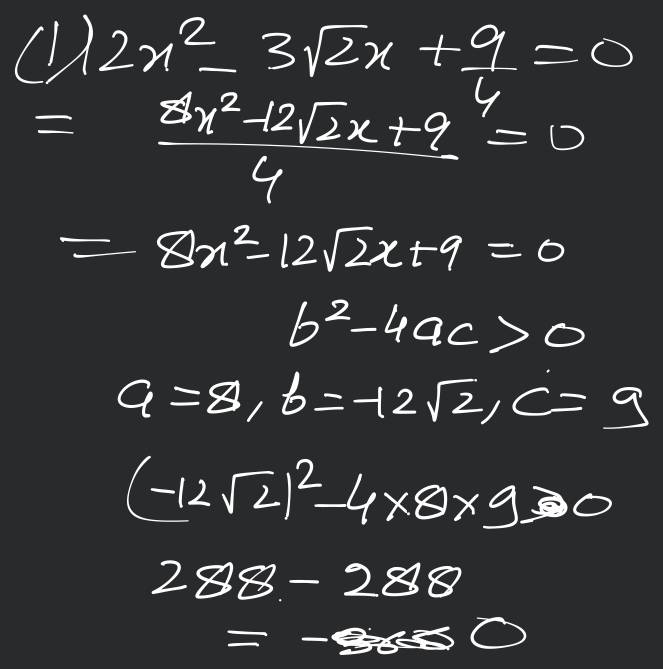 (1) 2x² - 3√2x + 9/4 = 0
= (8x² - 12√2x + 9)/4 = 0
= 8x² - 12√2x + 9 = 0
b² - 4ac > 0
a = 8, b = -12√2, c = 9
(-12√2)² - 4×8×9 0
288 - 288
= - 0